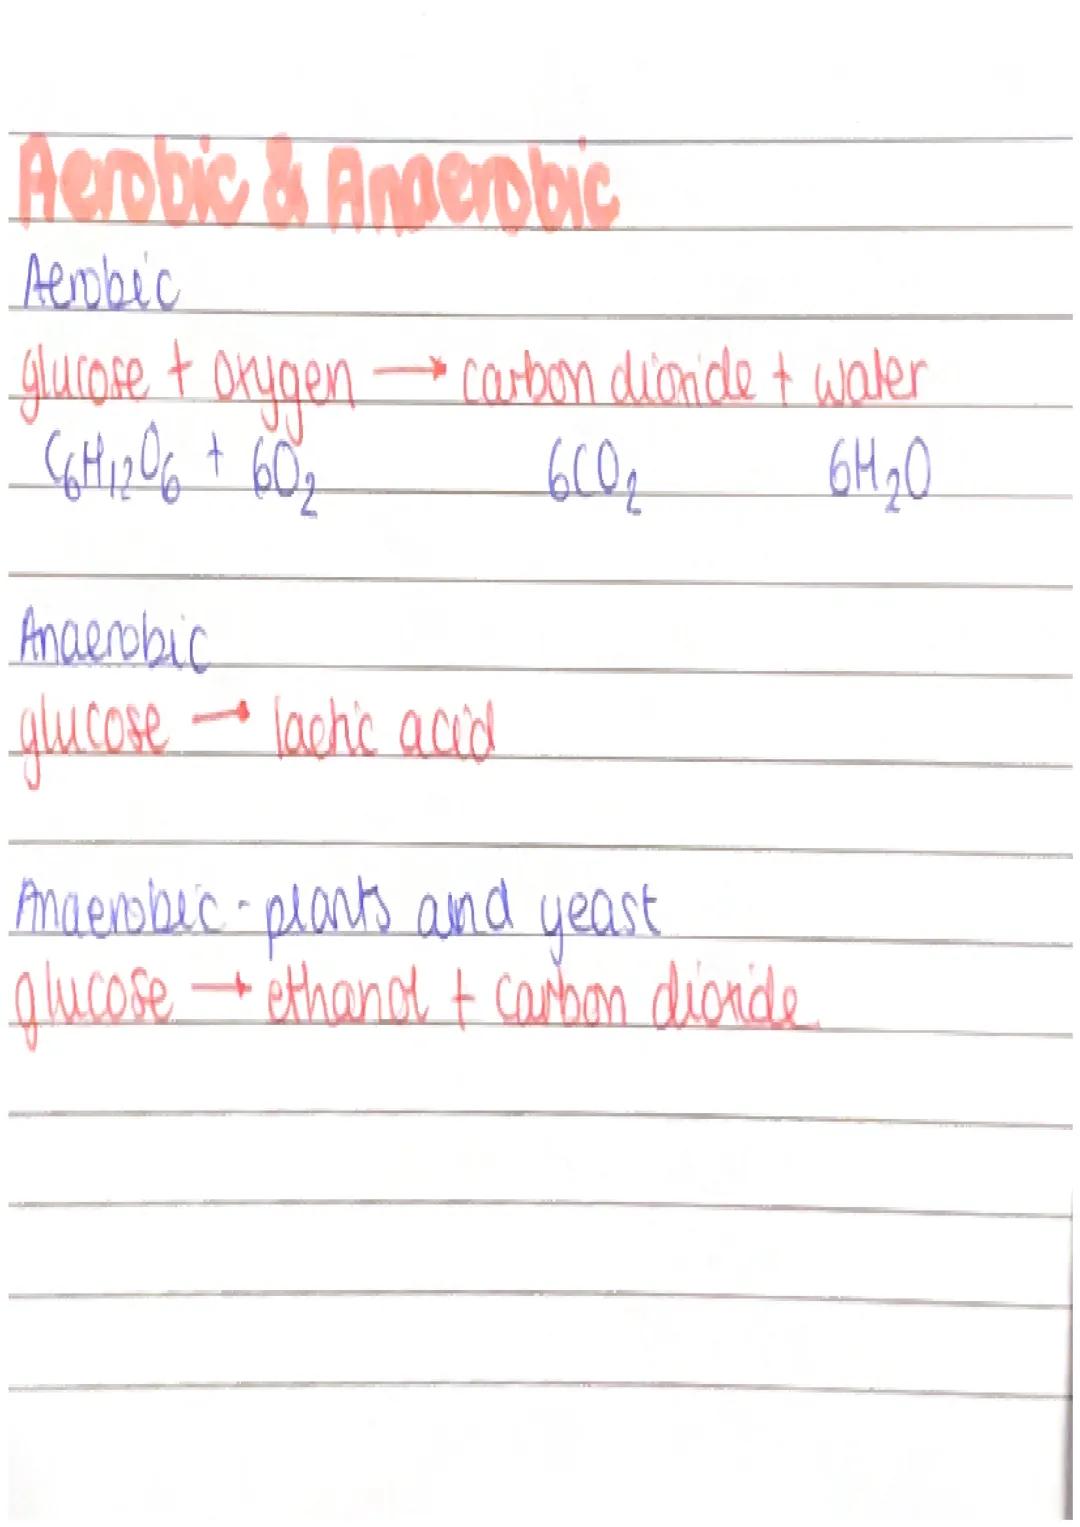 Aerobic & Anaerobic
Aerobic
glucose + oxygen → carbon dioxide + water
C₆H₁₂O₆ + 6O₂ 6CO₂ 6H₂O
Anaerobic
glucose → lactic acid
Anaerobic - plants and yeast
glucose → ethanol + carbon dioxide